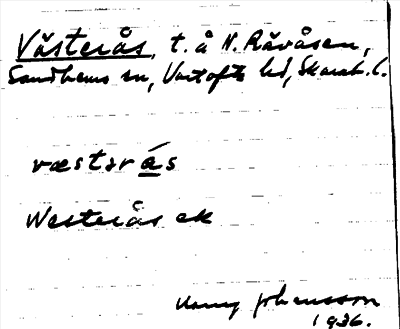 Västerås, t. å N. Råvåsen,
Sandhems sn, Vartofta hd, Skarab. l.
væstərás
Westerås ek
Harry Johansson
1936.